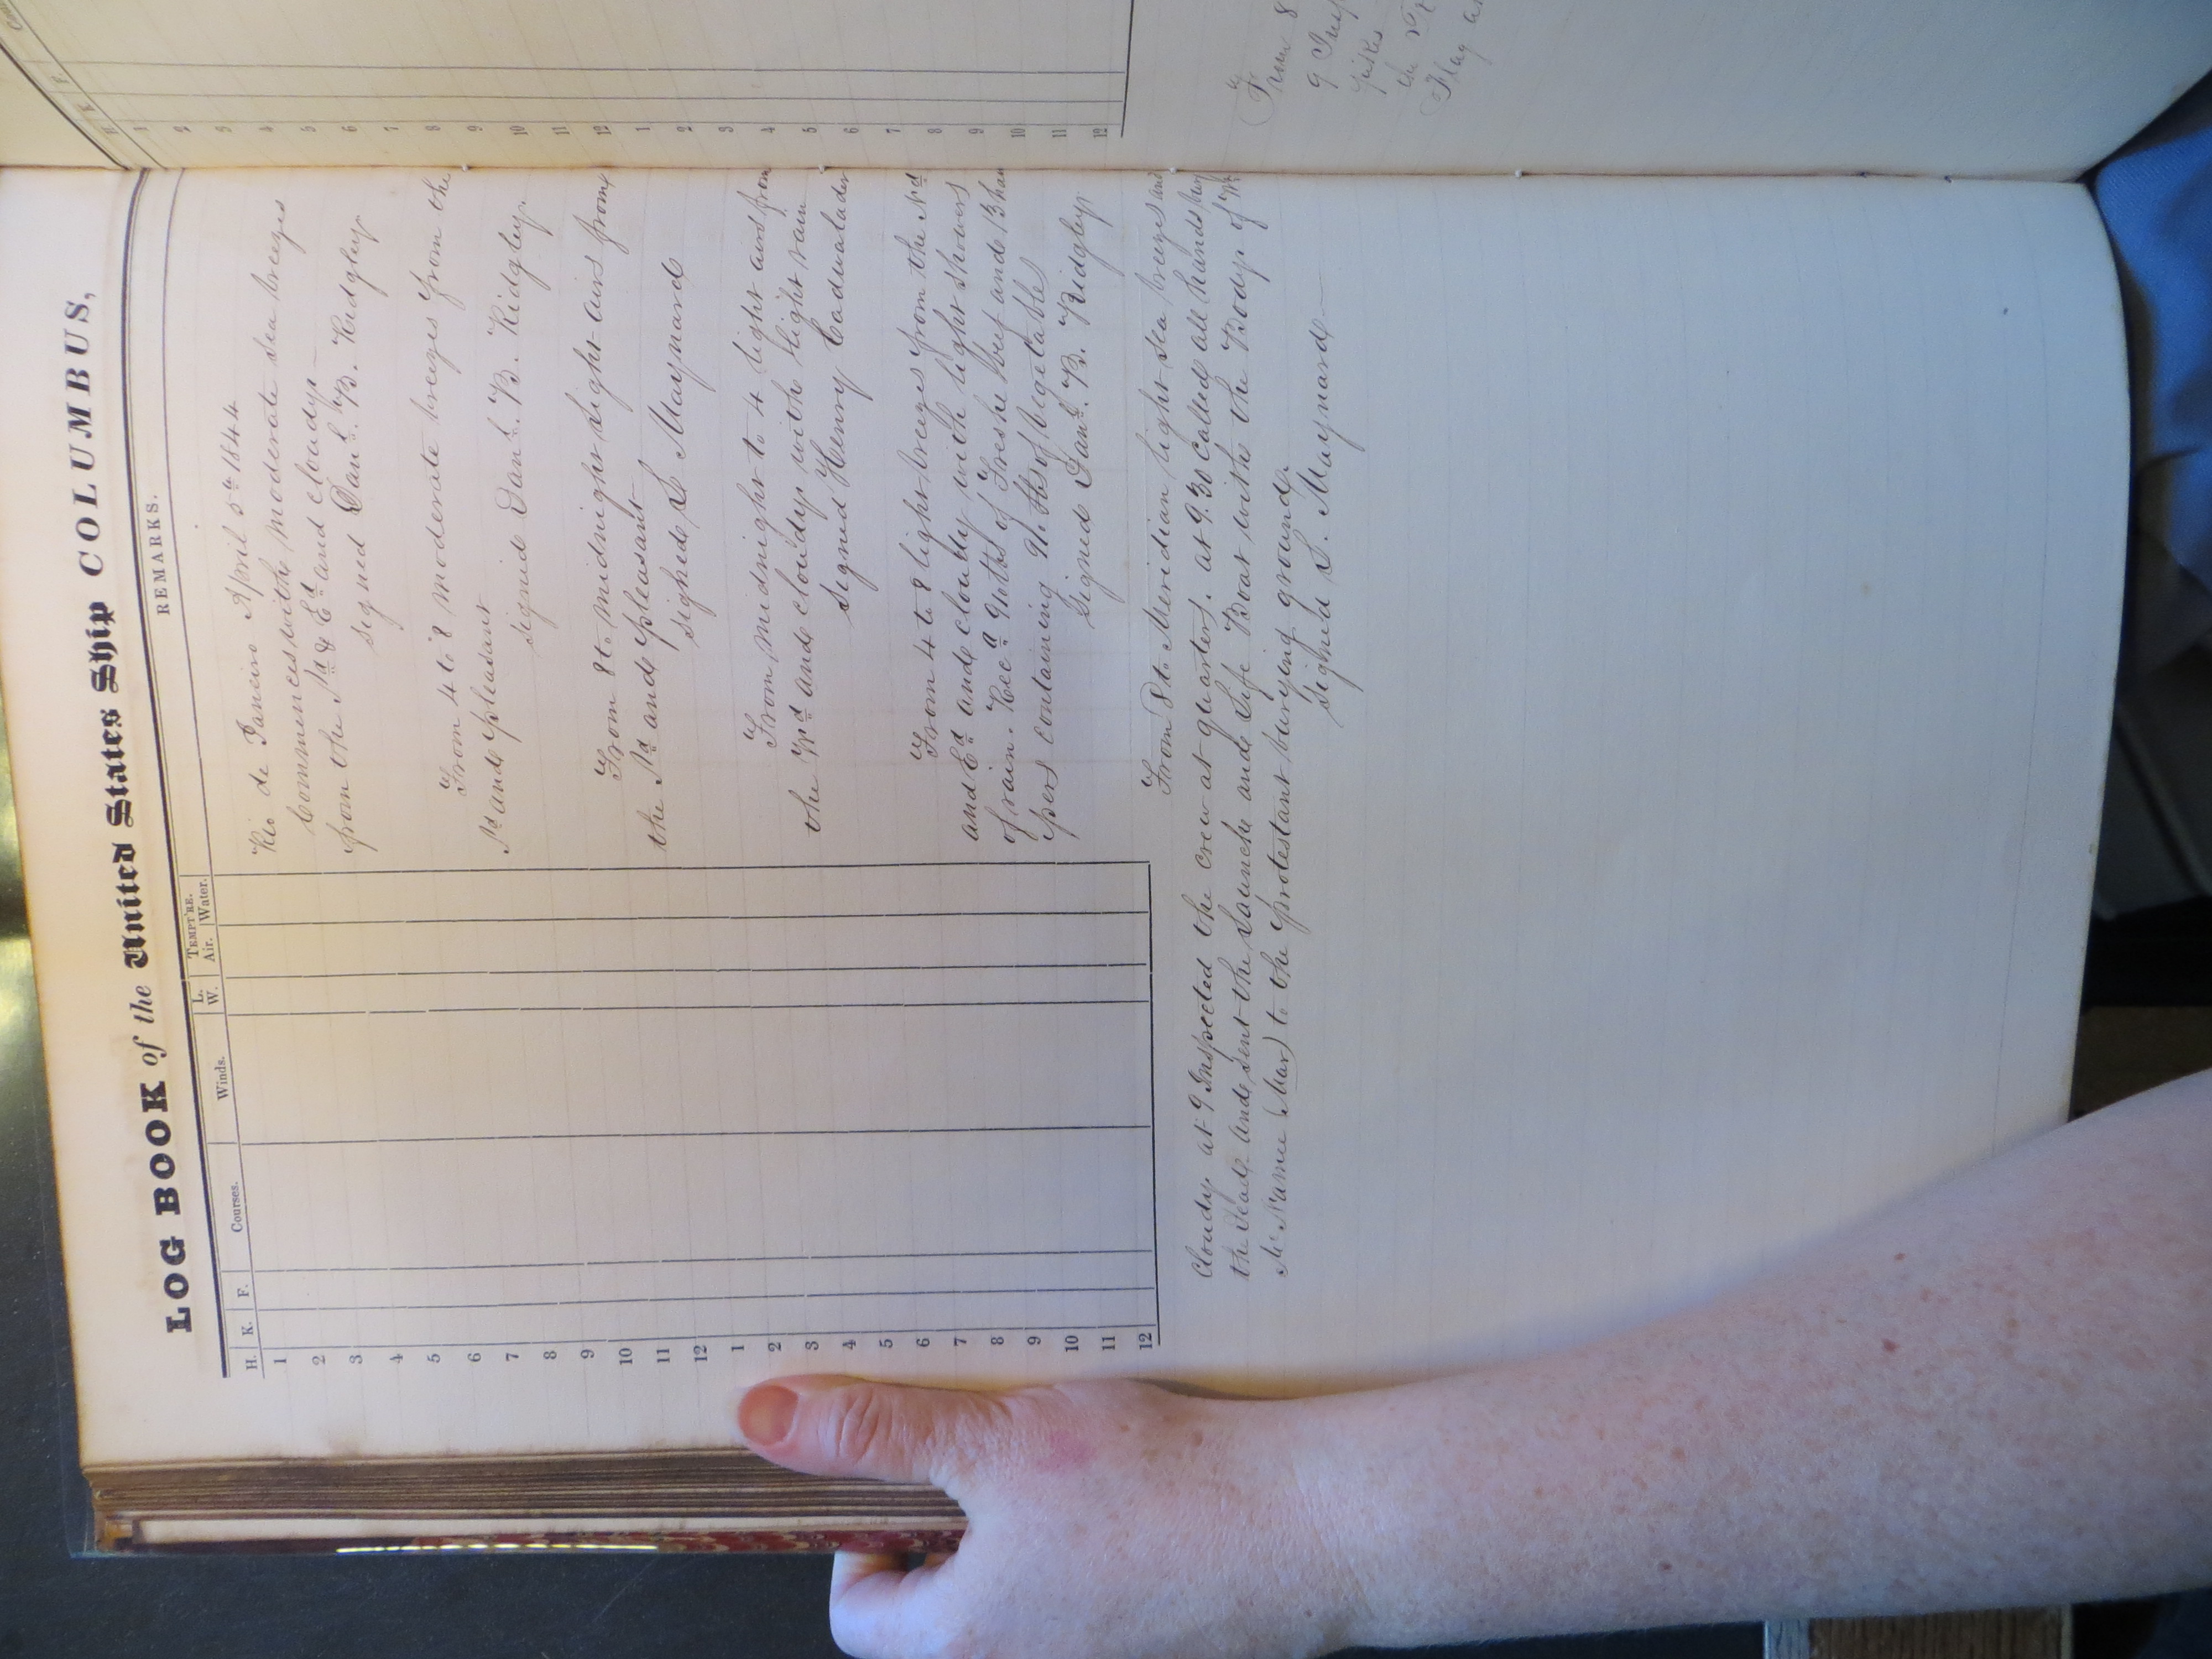 LOG BOOK of the United States Ship COLUMBUS,
H. K. F. Courses. Winds. L. W. TEMPT'RE. Air. Water. REMARKS.
1
2
3
4
5
6
7
8
9
10
11
12
1
2
3
4
5
6
7
8
9
10
11
12
Rio de Janeiro April 5th 1844
Commences with moderate sea breezes
from the Sd & Ed and cloudy—
signed Danl. B. Ridgley
From 4 to 8 moderate breezes from the
Sd and pleasant
signed Danl. B. Ridgley.
From 8 to midnight light airs from
the Sd and pleasant—
signed S Maynard
From midnight to 4 light airs from
the Nd and cloudy with light rain
signed Henry Cadwalader
From 4 to 8 light breezes from the Nd
and Ed and cloudy with light showers
of rain. Recd 910 lbs of Fresh beef and 13
pers containing lbs of vegetables
signed Danl. B. Ridgley
From 8 to Meridian light sea breezes and
Cloudy. at 9 Inspected the crew at quarters. at 9.30 Called all hands
the dead. and sent the Launch and Life Boat with the Body of
McNamee (Mar) to the protestant burying ground.
signed S. Maynard—
H. K. F.
1
2
3
4
5
6
7
8
9
10
11
12
1
2
3
4
5
6
7
8
9
10
11
12
From 8
9
the
Flag